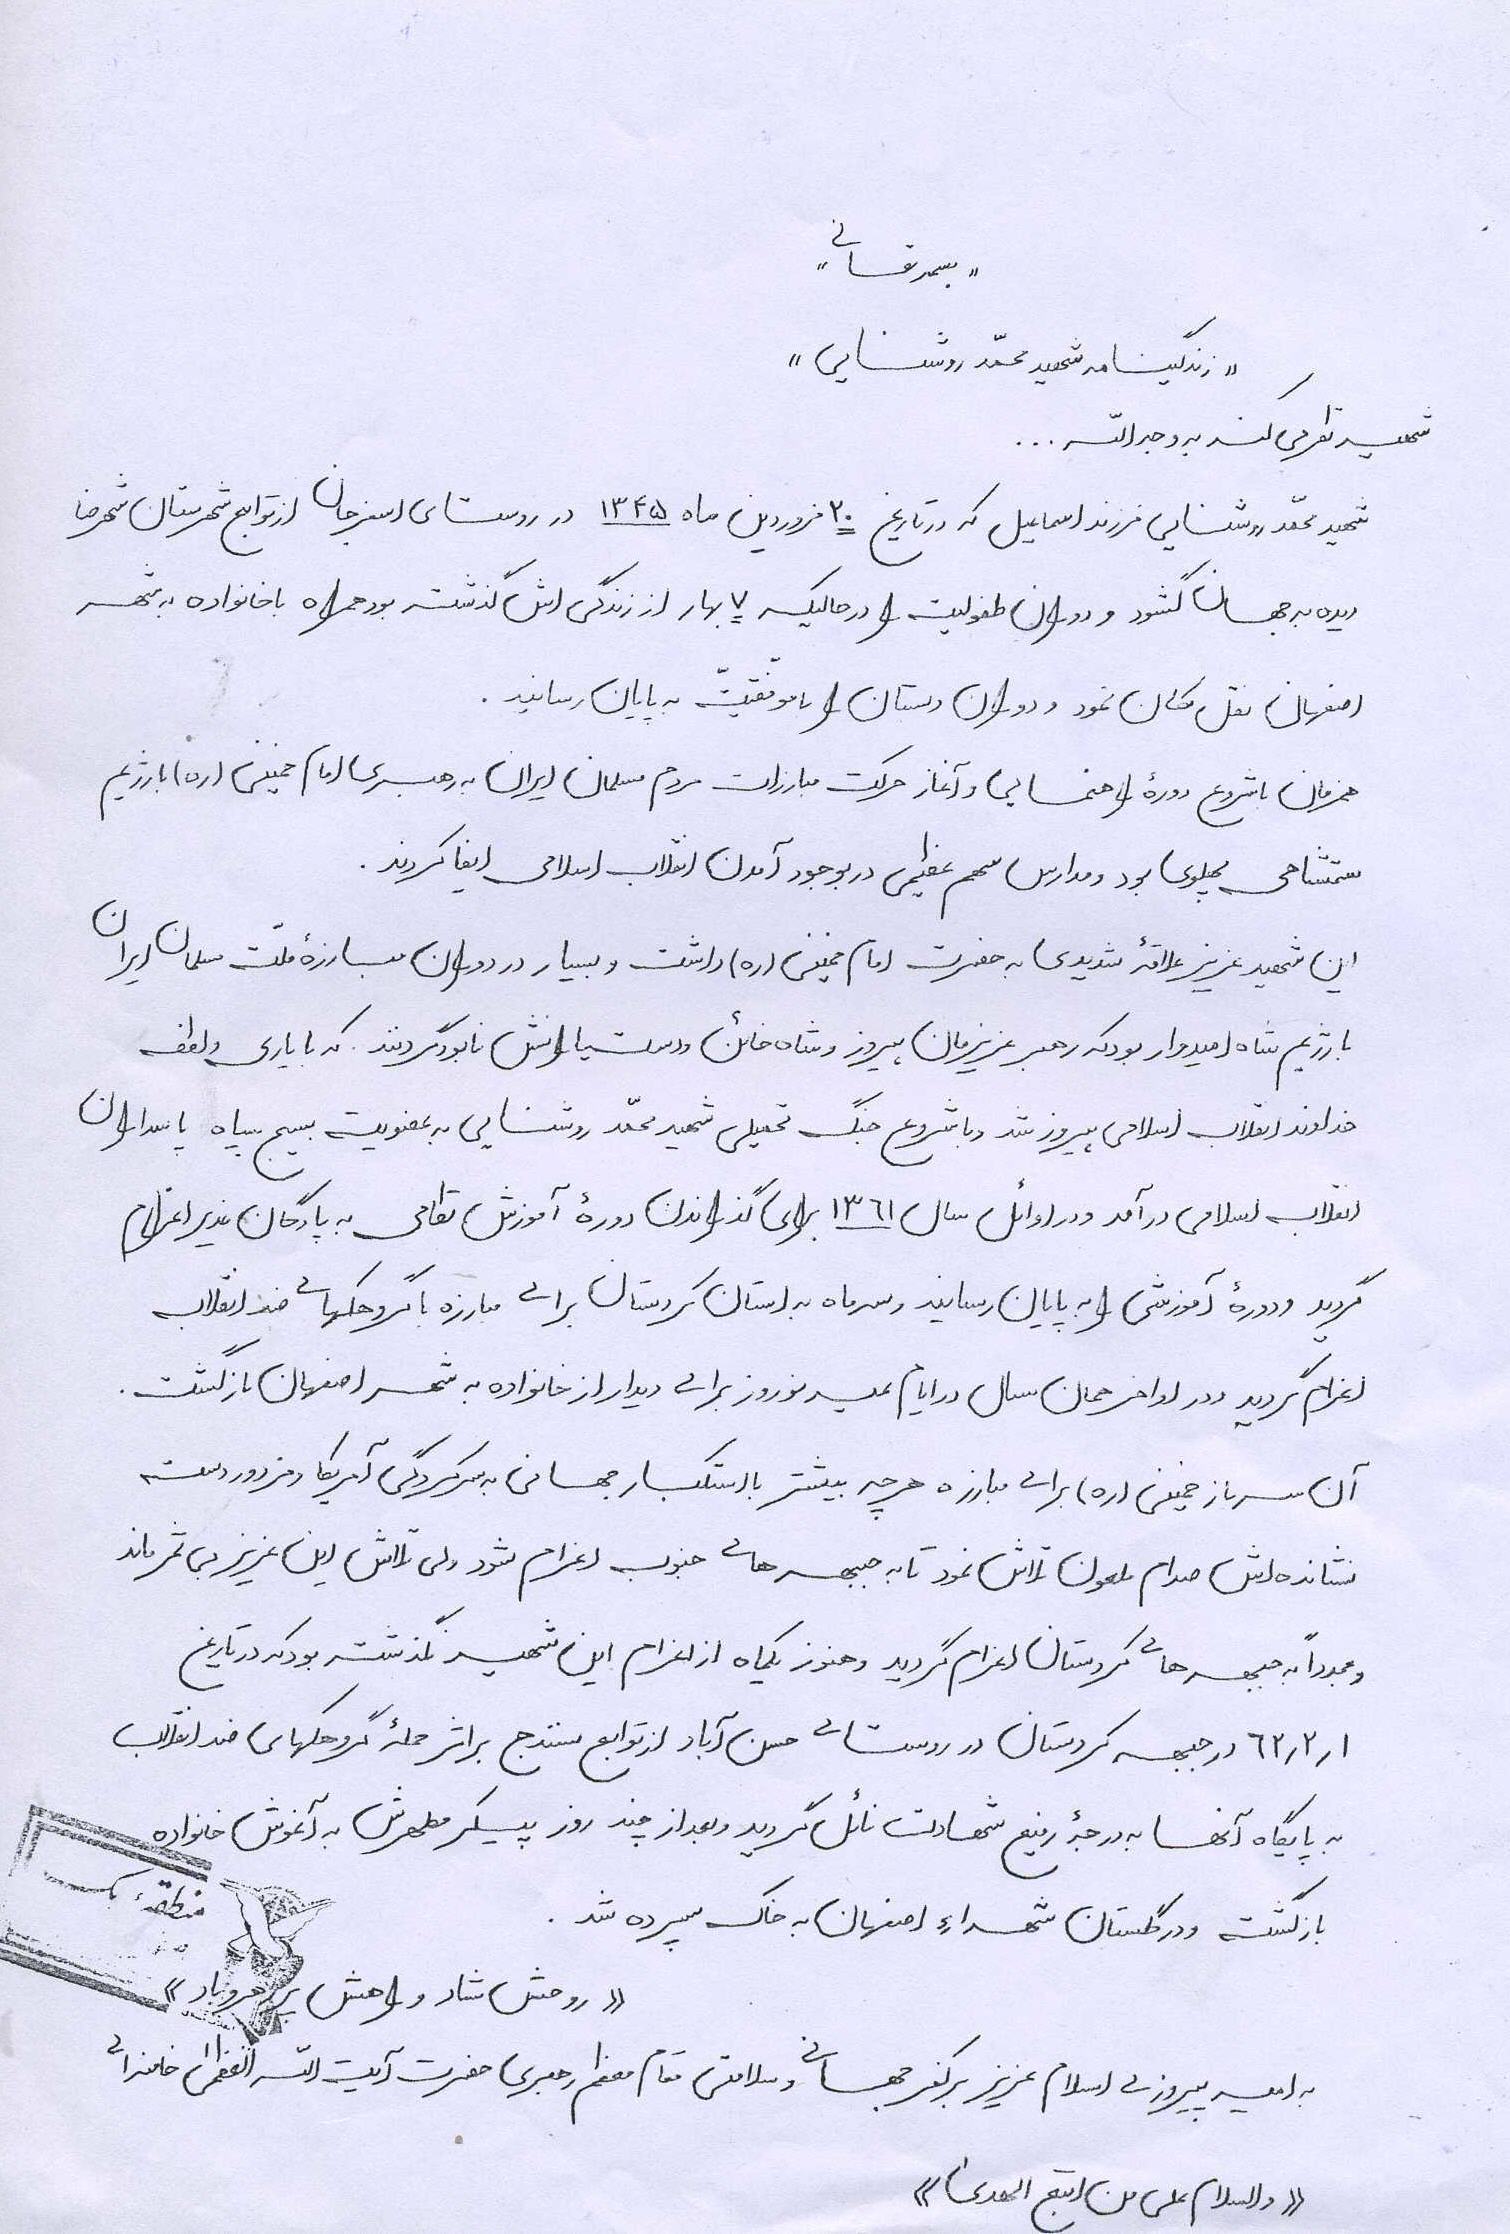 « بسمه تعالی »
« زندگینامه شهید محمّد روشنایی »
شهید نظر می کند به وجه اللّه ...
شهید محمّد روشنایی فرزند اسماعیل که در تاریخ ۲۰ فروردین ماه ۱۳۴۵ در روستای اسفرجان از توابع شهرستان شهرضا
دیده به جهان گشود و دوران طفولیت را در حالیکه ۷ بهار از زندگی اش گذشته بود همراه با خانواده به شهر
اصفهان نقل مکان نمود و دوران دبستان را با موفّقیّت به پایان رسانید .
همزمان با شروع دورهٔ راهنمایی و آغاز حرکت مبارزات مردم مسلمان ایران به رهبری امام خمینی (ره) با رژیم
ستمشاهی پهلوی بود و مدارس سهم عظیمی در بوجود آمدن انقلاب اسلامی ایفا کردند .
این شهید عزیز علاقهٔ شدیدی به حضرت امام خمینی (ره) داشت و بسیار در دوران مبارزهٔ ملّت مسلمان ایران
با رژیم شاه امیدوار بود که رهبر عزیزمان پیروز و شاه خائن و دست یارانش نابود گردند . که با یاری و لطف
خداوند انقلاب اسلامی پیروز شد و با شروع جنگ تحمیلی شهید محمّد روشنایی به عضویت بسیج سپاه پاسداران
انقلاب اسلامی در آمد و در اوائل سال ۱۳۶۱ برای گذراندن دورهٔ آموزش نظامی به پادگان غدیر اعزام
گردید و دورهٔ آموزشی را به پایان رسانید و سه ماه به استان کردستان برای مبارزه با گروهکهای ضد انقلاب
اعزام گردید و در اواخر همان سال در ایام عید نوروز برای دیدار از خانواده به شهر اصفهان بازگشت .
آن سرباز خمینی (ره) برای مبارزه هر چه بیشتر با استکبار جهانی به سرکردگی آمریکا و مزدور دست
نشانده اش صدام ملعون تلاش نمود تا به جبهه های جنوب اعزام شود ولی تلاش این عزیز بی ثمر ماند
و مجدداً به جبهه های کردستان اعزام گردید و هنوز یکماه از اعزام این شهید نگذشته بود که در تاریخ
۶۲٫۲٫۱ در جبهه کردستان در روستای حسن آباد از توابع سنندج بر اثر حملهٔ گروهکهای ضد انقلاب
به پایگاه آنها به درجهٔ رفیع شهادت نائل گردید و بعد از چند روز پیکر مطهرش به آغوش خانواده
بازگشت و در گلستان شهداء اصفهان به خاک سپرده شد .
منطقهٔ یک
« روحش شاد و راهش پر رهرو باد »
به امید پیروزی اسلام عزیز بر کفر جهانی و سلامتی مقام معظم رهبری حضرت آیت اللّه العظمی خامنه ای
« والسلام علی من اتبع الهدی »